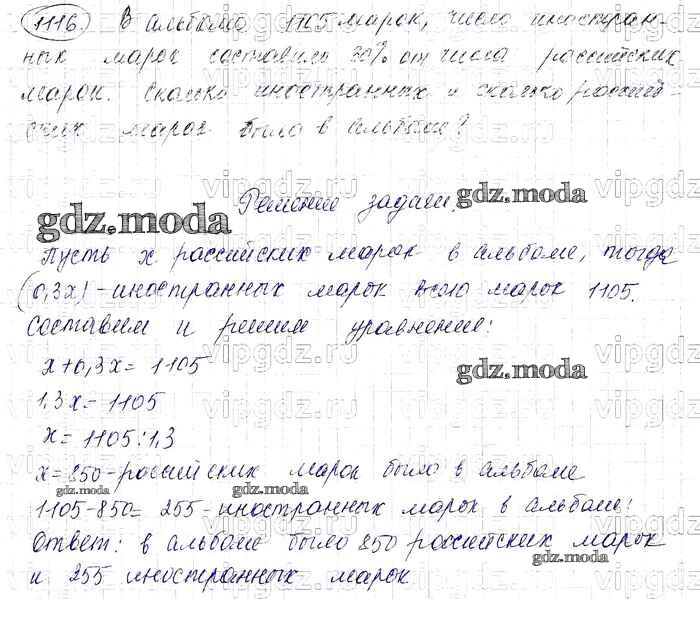 1116. В альбоме 1105 марок, число иностран-
ных марок составило 30% от числа российских
марок. Сколько иностранных и сколько россий-
ских марок было в альбоме?
Решение задачи.
gdz.moda
gdz.moda
Пусть x российских марок в альбоме, тогда
(0,3x) - иностранных марок всего марок 1105.
Составим и решим уравнение:
x+0,3x= 1105
gdz.moda
1,3x= 1105
x= 1105:1,3
x=850-российских марок было в альбоме
gdz.moda
gdz.moda
1105-850= 255-иностранных марок в альбоме!
Ответ: в альбоме было 850 российских марок
gdz.moda
и 255 иностранных марок
vipgdz.ru